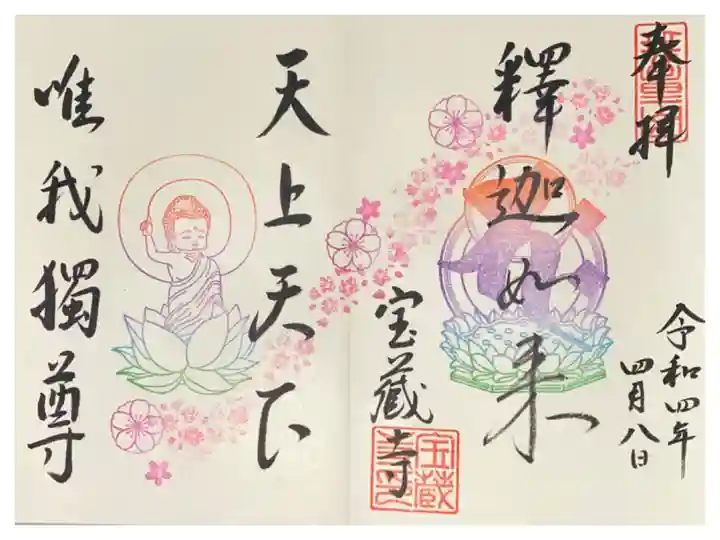 奉拝
釋迦如来
令和四年
四月八日
宝蔵寺
天上天下
唯我獨尊